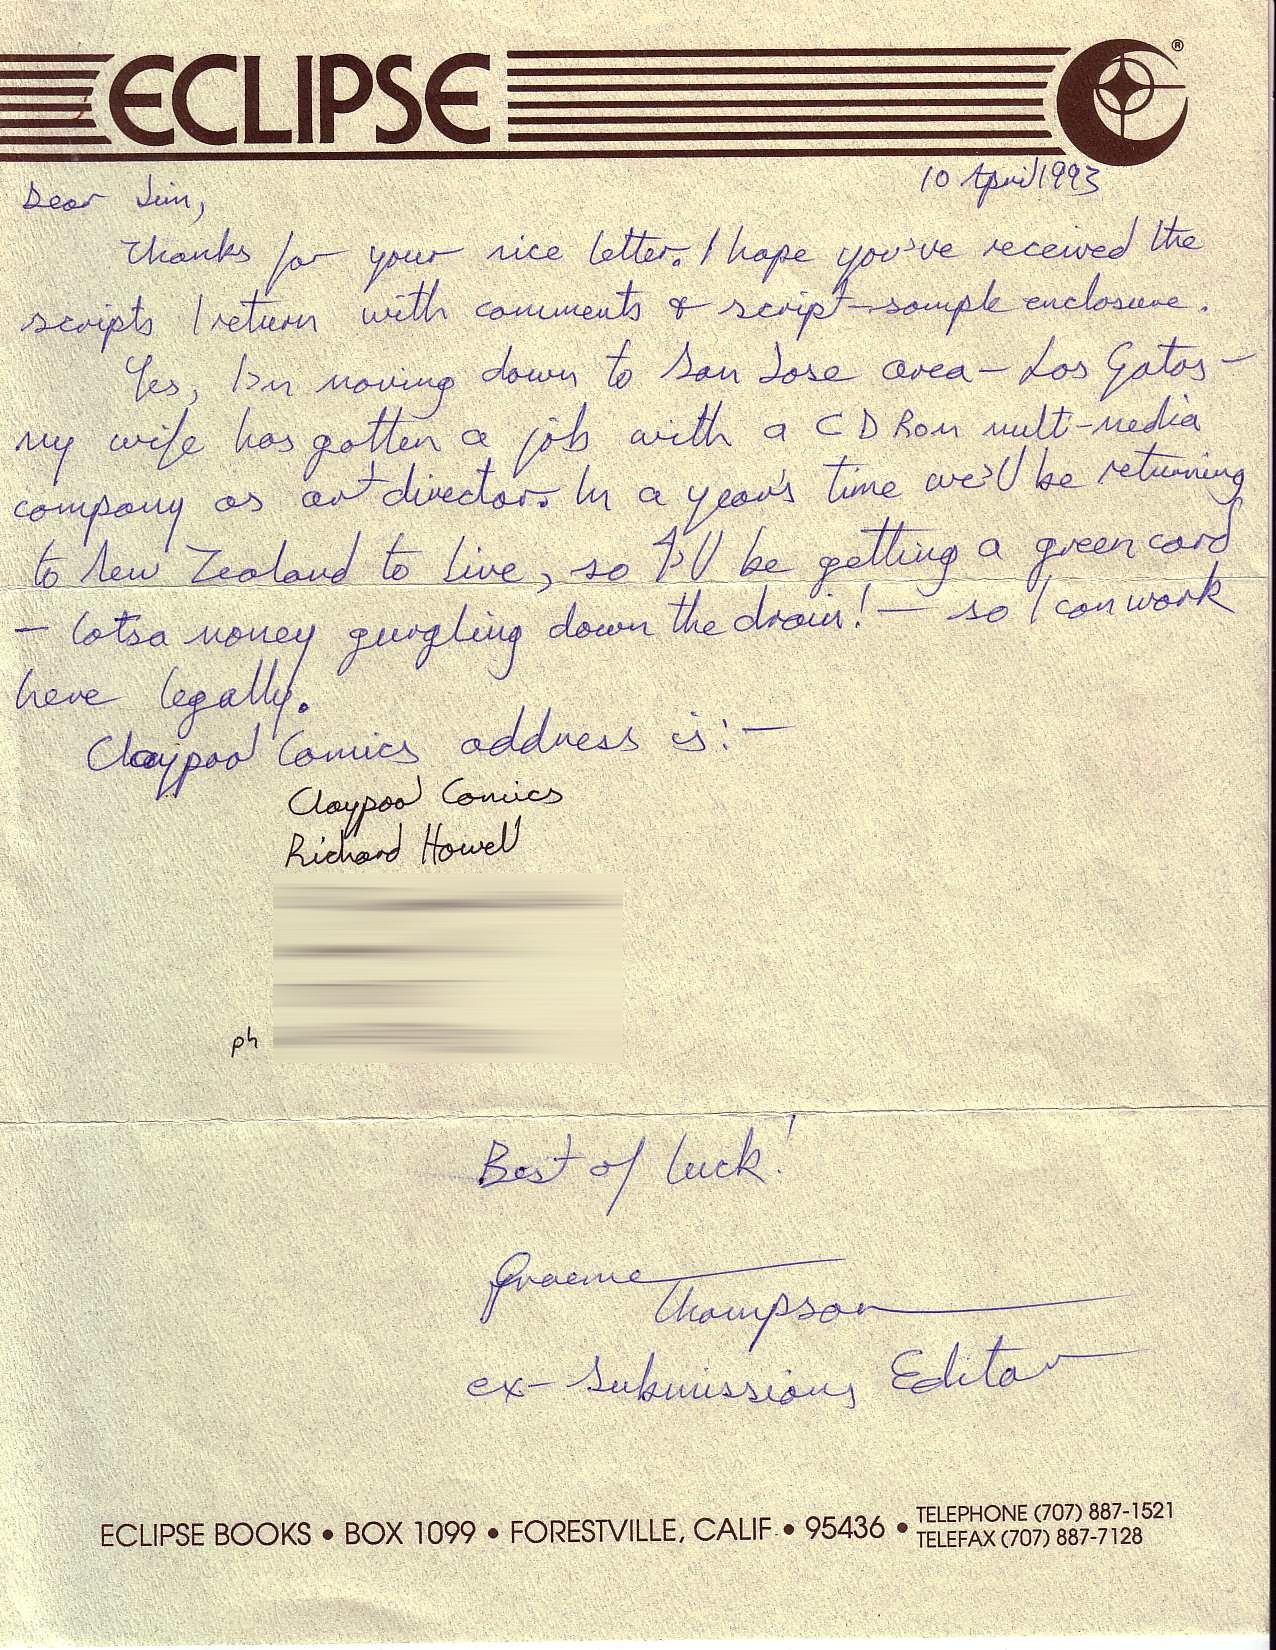 ECLIPSE ®
10 April 1993
Dear Jim,
Thanks for your nice letter. I hope you've received the
scripts I return with comments & script-sample enclosure.
Yes, I'm moving down to San Jose area – Los Gatos –
my wife has gotten a job with a CD Rom mult-media
company as art director. In a year's time we'll be returning
to New Zealand to live, so I'll be getting a green card
– lotsa money gurgling down the drain! – so I can work
here legally.
Claypool Comics address is:–
Claypool Comics
Richard Howell
ph
Best of luck!
Graeme
Thompson
ex-Submissions Editor
ECLIPSE BOOKS • BOX 1099 • FORESTVILLE, CALIF. • 95436 • TELEPHONE (707) 887-1521
TELEFAX (707) 887-7128